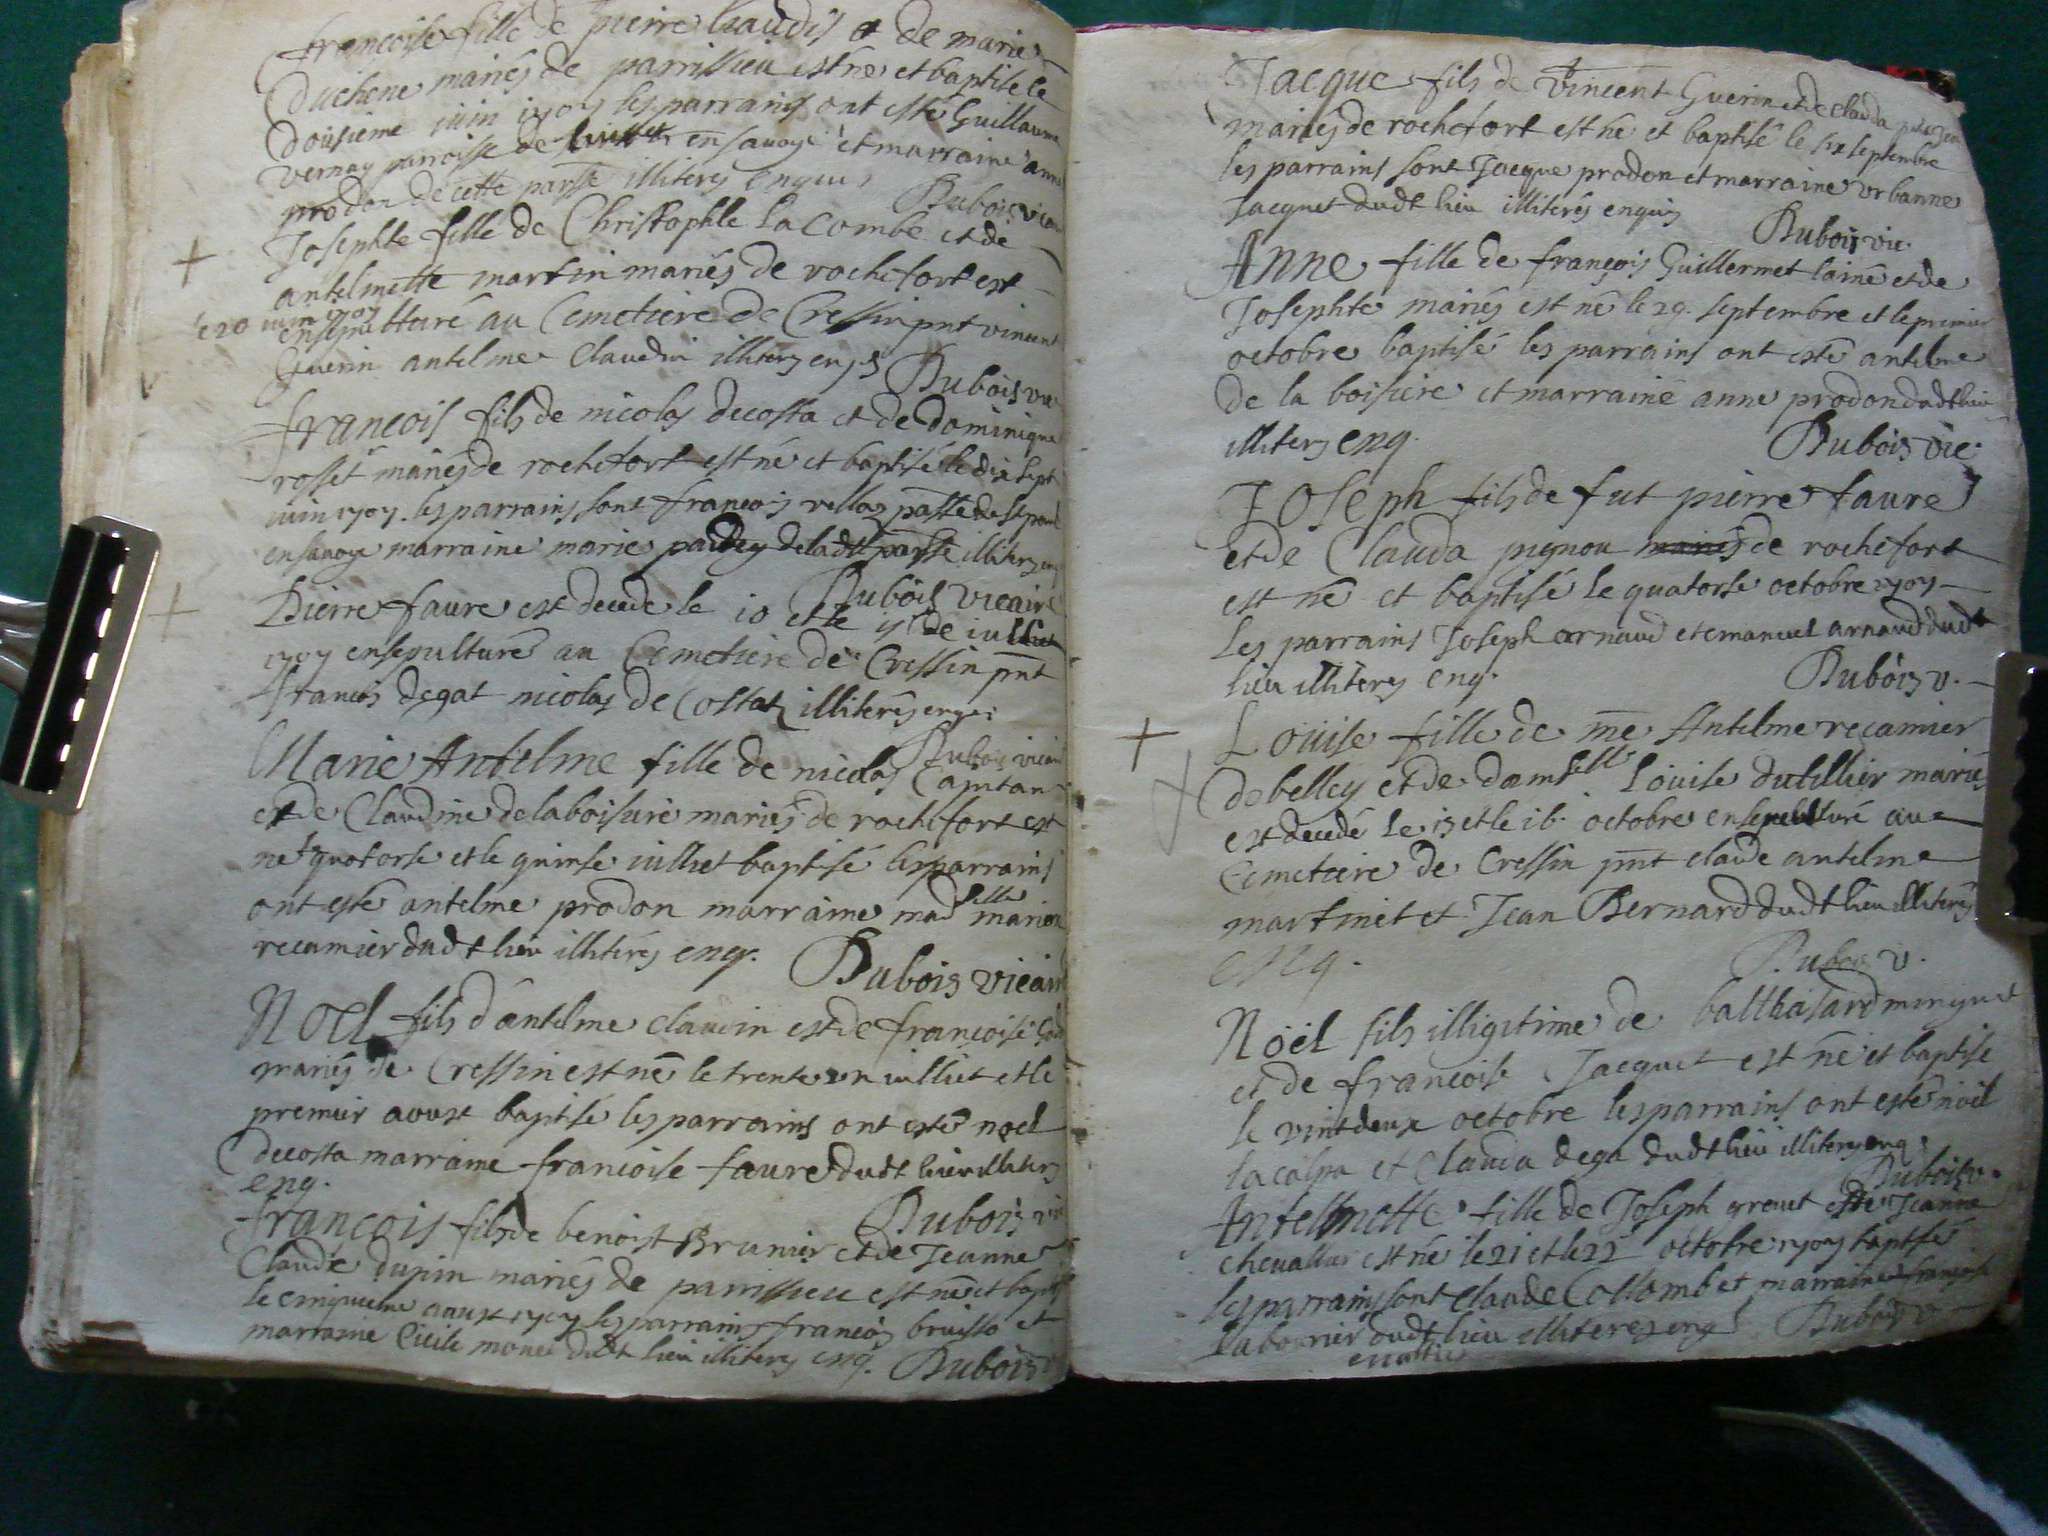 françoise fille de pierre baudis et de marie
Duchene mariés de parrissieu est né et baptisé le
dousieme iuin 1707 les parrains ont esté Guillaume
vernay parroisse de en savoye et marraine anne
prodon de cette parsse illiterés enquis
Dubois vicaire
Josephte fille de Christophle la Combe et de
antelmette martin mariés de rochefort est
le 20 iuin 1707
ensepulturé au Cemetiere de Cressin pnt vincent
Guerin antelme Claudin illiterés enqs
Dubois vic
françois fils de nicolas decosta et de dominique
rosset mariés de rochefort est né et baptisé le dix sept
iuin 1707 les parrains sont françois vellas
en savoye marraine marie de ladt parsse illiterés enq
Dubois vicaire
Pierre faure est decede le 10 et le 11 de iulliet
1707 ensepulturé au Cemetiere de Cressin pnt
francois degat nicolas de Costaz illiterés enquis
Dubois vicaire
Marie Antelme fille de nicolas Capitan
et de Claudine delaboisiere mariés de rochefort est
né quatorse et le quinse iulliet baptisé les parrains
ont esté antelme prodon marraine madselle marion
recamier dudt lieu illiterés enq.
Dubois vicaire
Noel fils d'antelme claudin est de françoise
mariés de Cressin est né le trente un iulliet et le
premier aoust baptisé les parrains ont esté noel
decosta marraine francoise faure dudt lieu illiterés
enq.
Dubois vic
françois fils de benoist Brunier et de Jeanne
Claude dupin mariés de parrissieu est né et baptisé
le cinquieme aoust 1707 les parrains françois et
marraine Cicile dudt lieu illiterés enq. Dubois v
Jacque fils de Vincent Guerin et de clauda
mariés de rochefort est né et baptisé le six septembre
les parrains sont Jacque prodon et marraine urbanne
Jacquet dudt lieu illiterés enquis
Dubois vic.
Anne fille de françois Guillermet lainé et de
Josephte mariés est né le 29. septembre et le premier
octobre baptisé les parrains ont esté antelme
de la boisiere et marraine anne prodon dudt lieu
illiterés enq.
Dubois vic.
Joseph fils de fut pierre faure
et de Clauda pignou mariés de rochefort
est né et baptisé le quatorse octobre 1707
les parrains Joseph arnaud et emanuel arnaud dudt
lieu illiterés enq.
Dubois v.
Louise fille de me Antelme recamier
de belley et de damselle Louise dutillier mariés
est decedé le 15 et le 16. octobre ensepulturé au
Cemetiere de Cressin pnt claude antelme
martinet et Jean Bernard dudt lieu illiterés
enq.
Dubois v.
Noël fils illigitime de balthasard minguet
et de francoise Jacquet est né et baptisé
le vintdeux octobre les parrains ont esté noël
et Clauda dega dudt lieu illiterés enq.
Dubois v.
Antelmette fille de Joseph et de Jeanne
chevallier est né le 21 et le 22 octobre 1707 baptisé
les parrains sont claude Collomb et marraine françoise
dudt lieu illiterés enq
Dubois v